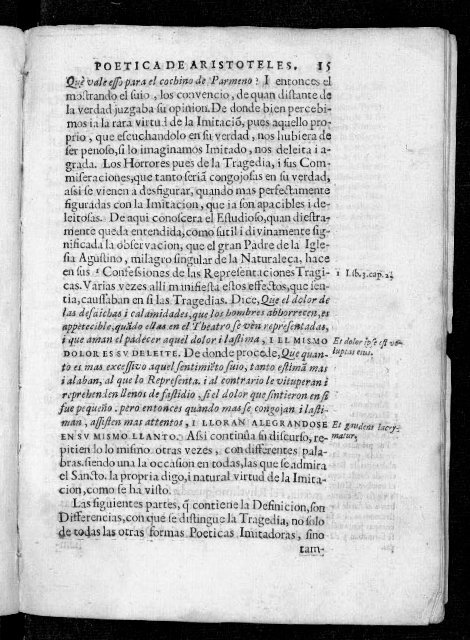 POETICA DE ARISTOTELES. 15
Què vale esso para el cochino de Parmeno? I entonces el
mostrando el suio, los convencio, de quan distante de
la verdad juzgaba su opinion. De donde bien percebi-
mos ia la rata virtud de la Imitació, pues aquello pro-
prio, que escuchandolo en su verdad, nos hubiera de
ser penoso, si lo imaginamos Imitado, nos deleita i a-
grada. Los Horrores pues de la Tragedia, i sus Com-
miseraciones, que tanto seriã congojosas en su verdad,
assi se vienen a desfigurar, quando mas perfectamente
figuradas con la Imitacion, que ia son apacibles i de-
leitosas. De aqui conoscera el Estudioso, quan diestra-
mente queda entendida, como sutil i divinamente sig-
nificada la observacion, que el gran Padre de la Igle-
sia Agustino, milagro singular de la Naturaleça, hace
en sus ¹ Confessiones de las Representaciones Tragi-
1 Lib. 3. cap. 2.
cas. Varias veces alli manifiesta estos effectos, que ien-
tia, caussaban en si las Tragedias. Dice, Que el dolor de
las desdichas i calamidades, que los hombres abborrecen, es
appetecible, quãdo ellas en el Theatro se vèn representadas,
i que aman el padecer aquel dolor i lastima, I EL MISMO
Et dolor ipse est vo-
DOLOR ES SU DELEITE. De donde procede, Que quan-
luptas eius.
to es mas excessivo aquel sentimiēto suio, tanto estimã mas
i alaban, al que lo Representa. i al contrario le vituperan i
reprehenden llenos de fastidio, si el dolor que sintieron en si
fue pequeño. pero entonces quando mas se congojan i lasti-
man, assisten mas attentos, I LLORAN ALEGRANDOSE
Et gaudens lacry-
EN SU MISMO LLANTO. Assi continûa su discurso, re-
matur,
pitiendo lo mismo otras veces, con differentes pala-
bras. siendo una la occasion en todas, las que se admira
el Sancto. la propria digo, i natural virtud de la Imita-
cion, como se ha visto.
Las siguientes partes, q̃ contiene la Definicion, son
Differencias, con que se distingue la Tragedia, no solo
de todas las otras formas Poeticas Imitadoras, sino
tam-